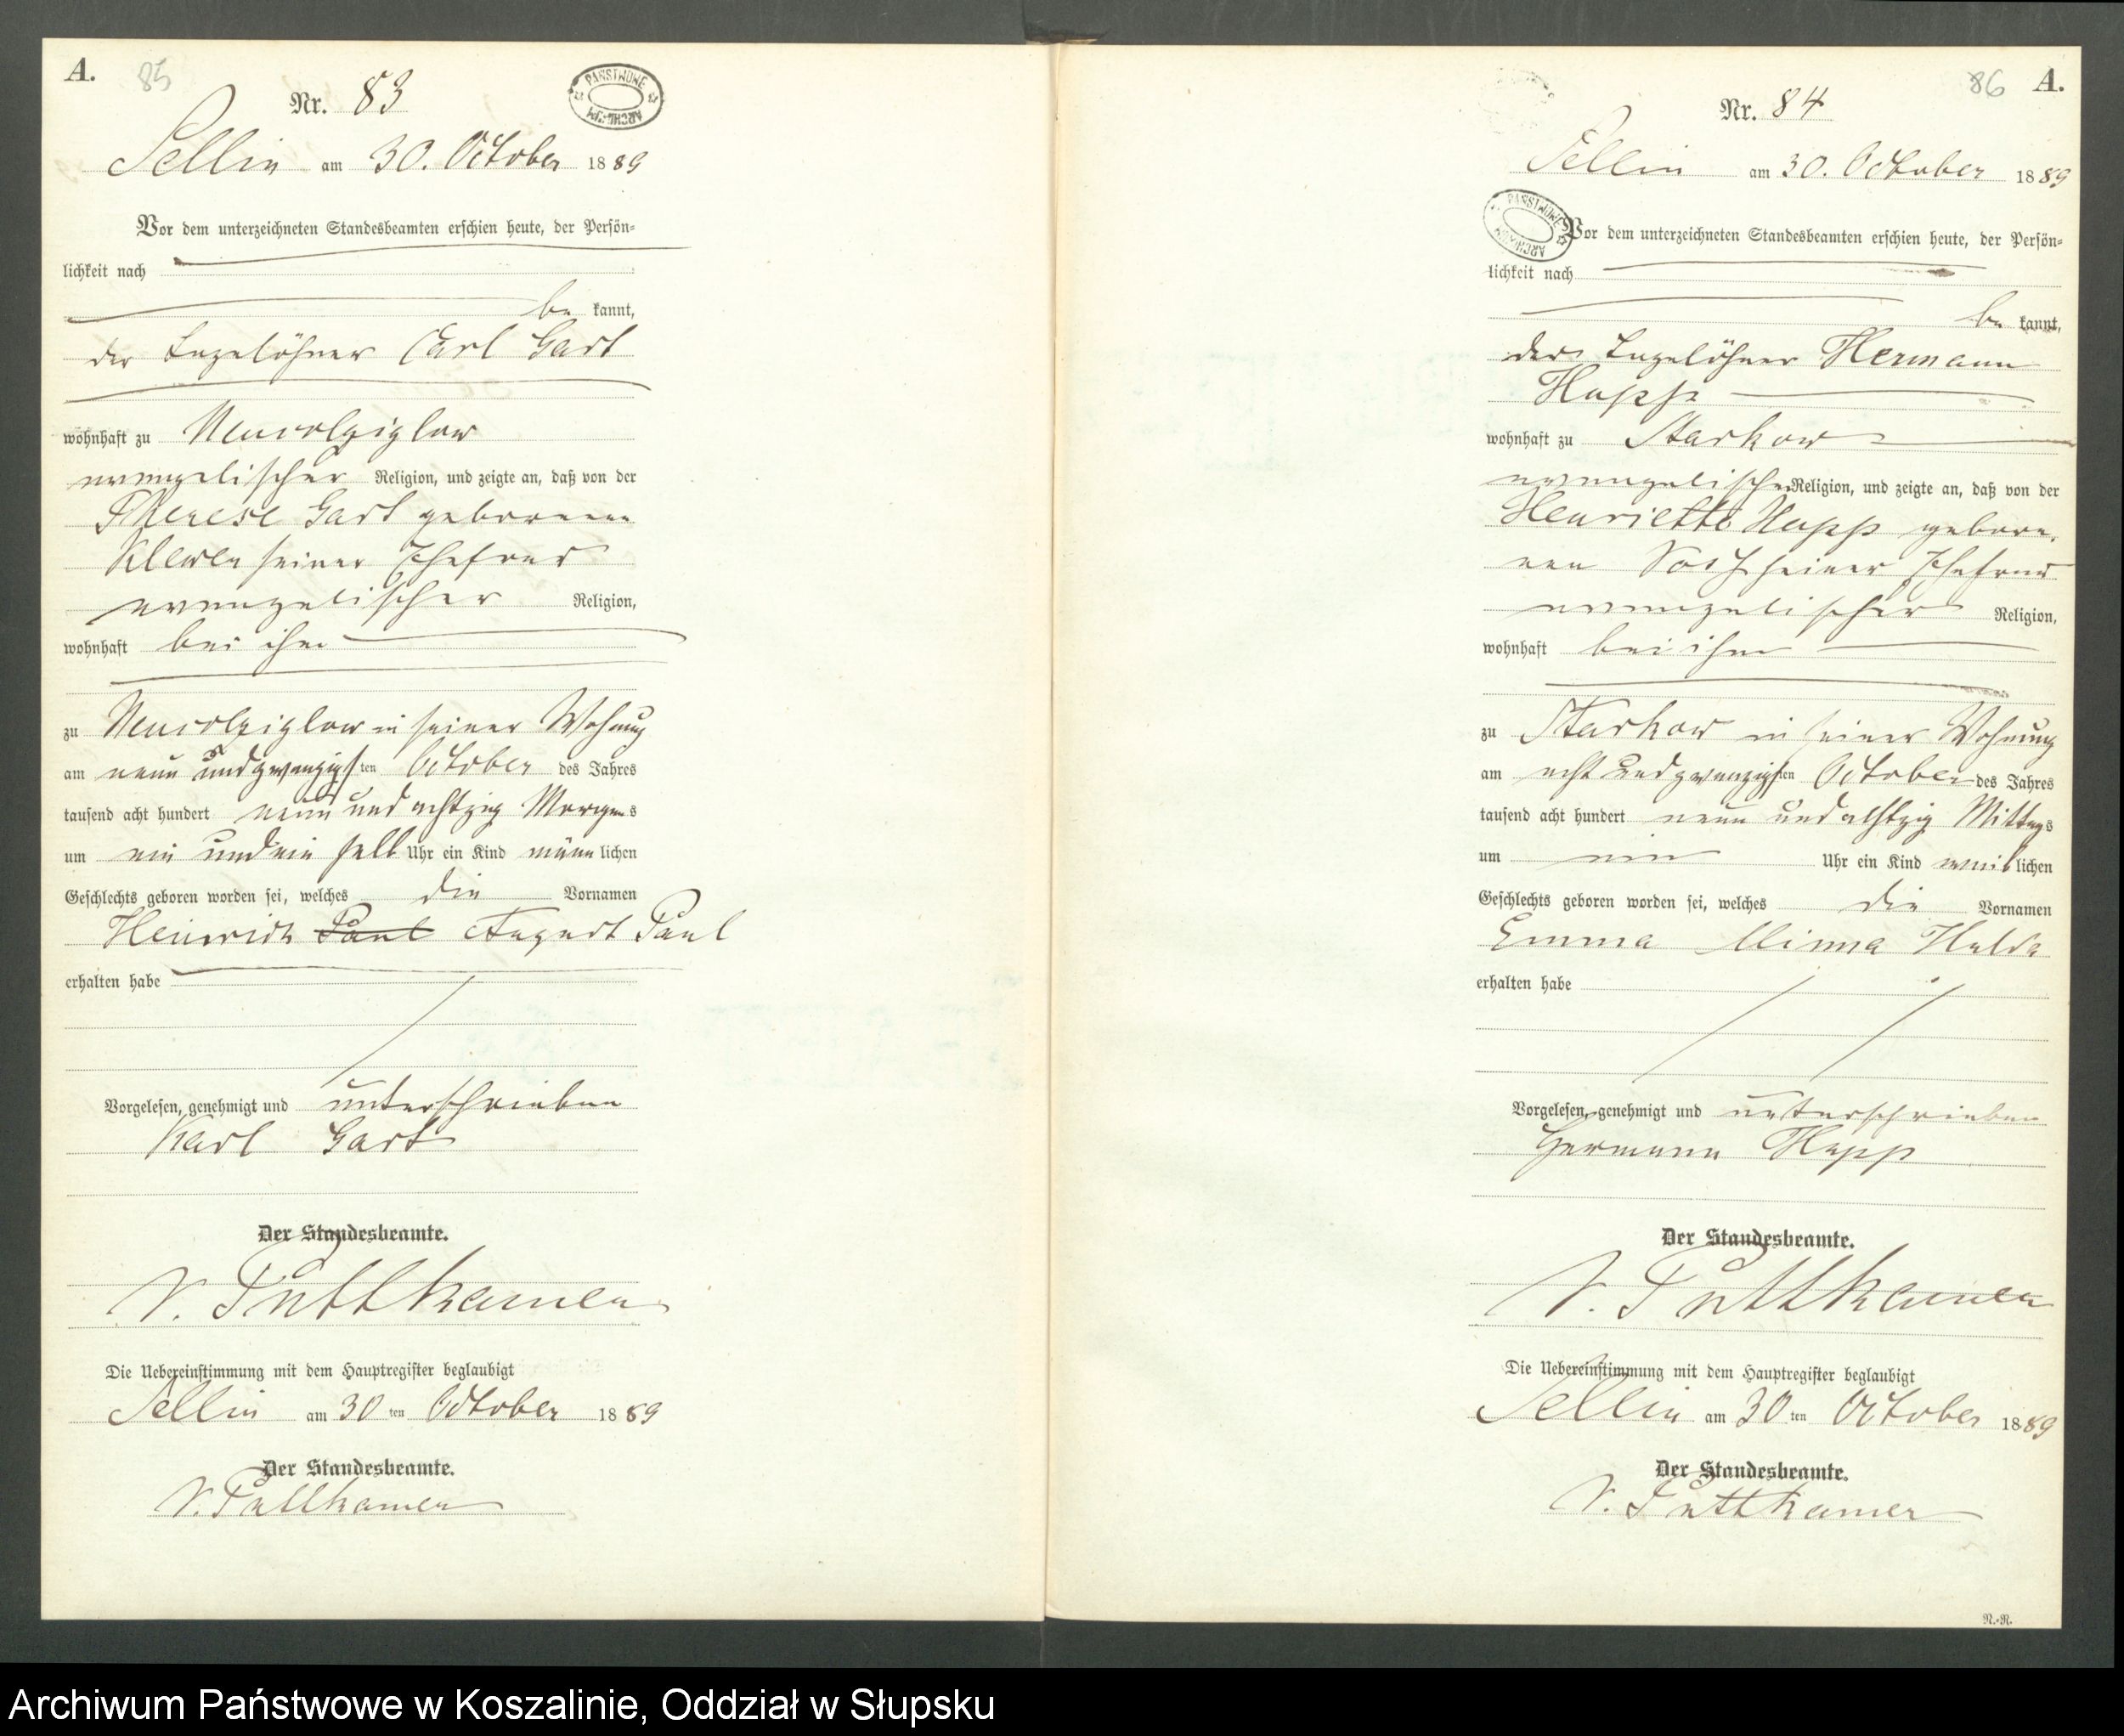 A.
85
Nr. 83
PAŃSTWOWE
ARCHIWUM
Sellin am 30. October 1889
Vor dem unterzeichneten Standesbeamten erschien heute, der Persön=
lichkeit nach
be kannt,
der Tagelöhner Carl Gart
wohnhaft zu
evangelischer Religion, und zeigte an, daß von der
Therese Gart geborenen
Klewer seiner Ehefrau
evangelischer Religion,
wohnhaft bei ihm
zu in seiner Wohnung
am neun und zwanzigsten October des Jahres
tausend acht hundert neun und achtzig Morgens
um ein und ein halb Uhr ein Kind männlichen
Geschlechts geboren worden sei, welches die Vornamen
Heinrich Paul August Paul
erhalten habe
Vorgelesen, genehmigt und unterschrieben
Karl Gart
Der Standesbeamte.
v. Puttkamer
Die Uebereinstimmung mit dem Hauptregister beglaubigt
Sellin am 30 ten October 1889
Der Standesbeamte.
v. Puttkamer
86
A.
Nr. 84
Sellin am 30. October 1889
PAŃSTWOWE
ARCHIWUM
Vor dem unterzeichneten Standesbeamten erschien heute, der Persön=
lichkeit nach
be kannt,
der Tagelöhner Hermann
Happ
wohnhaft zu Starkow
evangelischer Religion, und zeigte an, daß von der
Henriette Happ gebore,
nen seiner Ehefrau
evangelischer Religion,
wohnhaft bei ihm
zu Starkow in seiner Wohnung
am acht und zwanzigsten October des Jahres
tausend acht hundert neun und achtzig Mittags
um ein Uhr ein Kind weiblichen
Geschlechts geboren worden sei, welches die Vornamen
Emma Minna Hulda
erhalten habe
Vorgelesen, genehmigt und unterschrieben
Hermann Happ
Der Standesbeamte.
v. Puttkamer
Die Uebereinstimmung mit dem Hauptregister beglaubigt
Sellin am 30 ten October 1889
Der Standesbeamte.
v. Puttkamer
N.-R.
Archiwum Państwowe w Koszalinie, Oddział w Słupsku